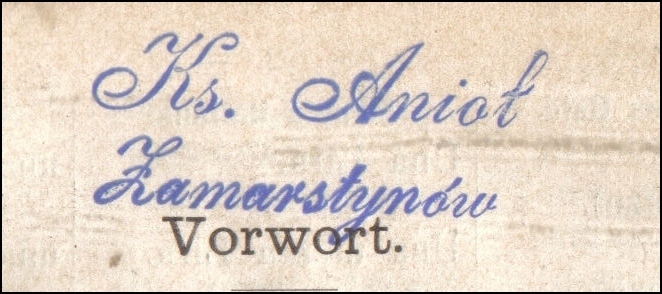 Ks. Anioł
Zamarstynów
Vorwort.